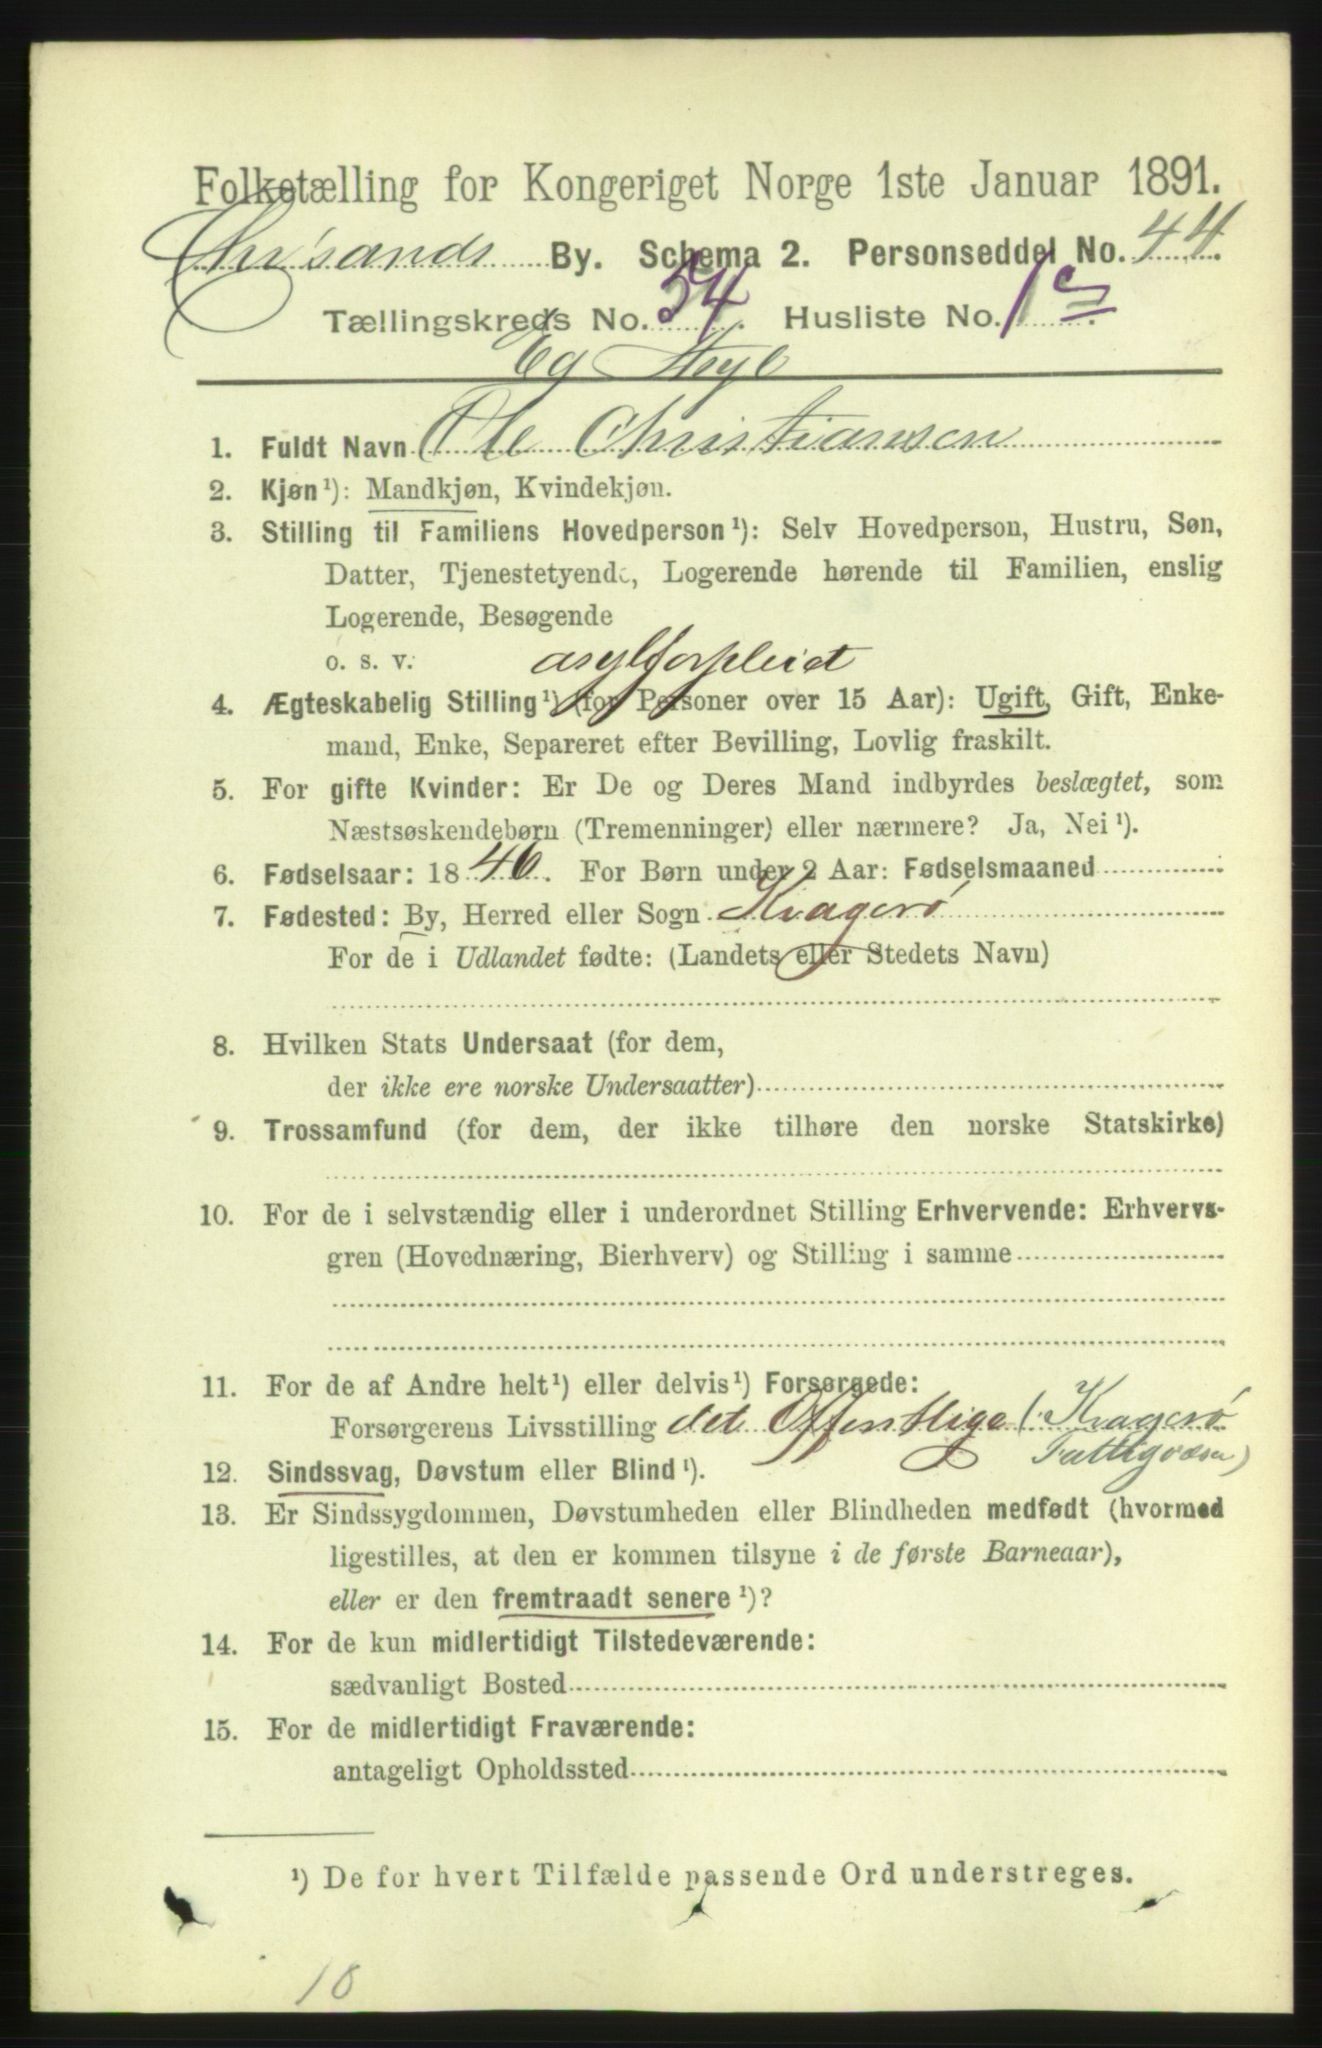 Folketælling for Kongeriget Norge 1ste Januar 1891.
Chr'sands By. Schema 2. Personseddel No. 44
Tællingskreds No. 54. Husliste No. 1
Eg Asyl
1. Fuldt Navn Ole Christiansen
2. Kjøn¹): Mandkjøn, Kvindekjøn.
3. Stilling til Familiens Hovedperson¹): Selv Hovedperson, Hustru, Søn,
Datter, Tjenestetyende, Logerende hørende til Familien, enslig
Logerende, Besøgende
o. s. v. asylforpleiet
4. Ægteskabelig Stilling¹) (for Personer over 15 Aar): Ugift, Gift, Enke-
mand, Enke, Separeret efter Bevilling, Lovlig fraskilt.
5. For gifte Kvinder: Er De og Deres Mand indbyrdes beslægtet, som
Næstsøskendebørn (Tremenninger) eller nærmere? Ja, Nei¹).
6. Fødselsaar: 1846. For Børn under 2 Aar: Fødselsmaaned
7. Fødested: By, Herred eller Sogn Kragerö
For de i Udlandet fødte: (Landets eller Stedets Navn)
8. Hvilken Stats Undersaat (for dem,
der ikke ere norske Undersaatter)
9. Trossamfund (for dem, der ikke tilhøre den norske Statskirke)
10. For de i selvstændig eller i underordnet Stilling Erhvervende: Erhvervs-
gren (Hovednæring, Bierhverv) og Stilling i samme
11. For de af Andre helt¹) eller delvis¹) Forsørgede:
Forsørgerens Livsstilling det Offentlige (Kragerö
Fattigvæsen)
12. Sindssvag, Døvstum eller Blind¹).
13. Er Sindssygdommen, Døvstumheden eller Blindheden medfødt (hvormed
ligestilles, at den er kommen tilsyne i de første Barneaar),
eller er den fremtraadt senere¹)?
14. For de kun midlertidigt Tilstedeværende:
sædvanligt Bosted
15. For de midlertidigt Fraværende:
antageligt Opholdssted
¹) De for hvert Tilfælde passende Ord understreges.
18